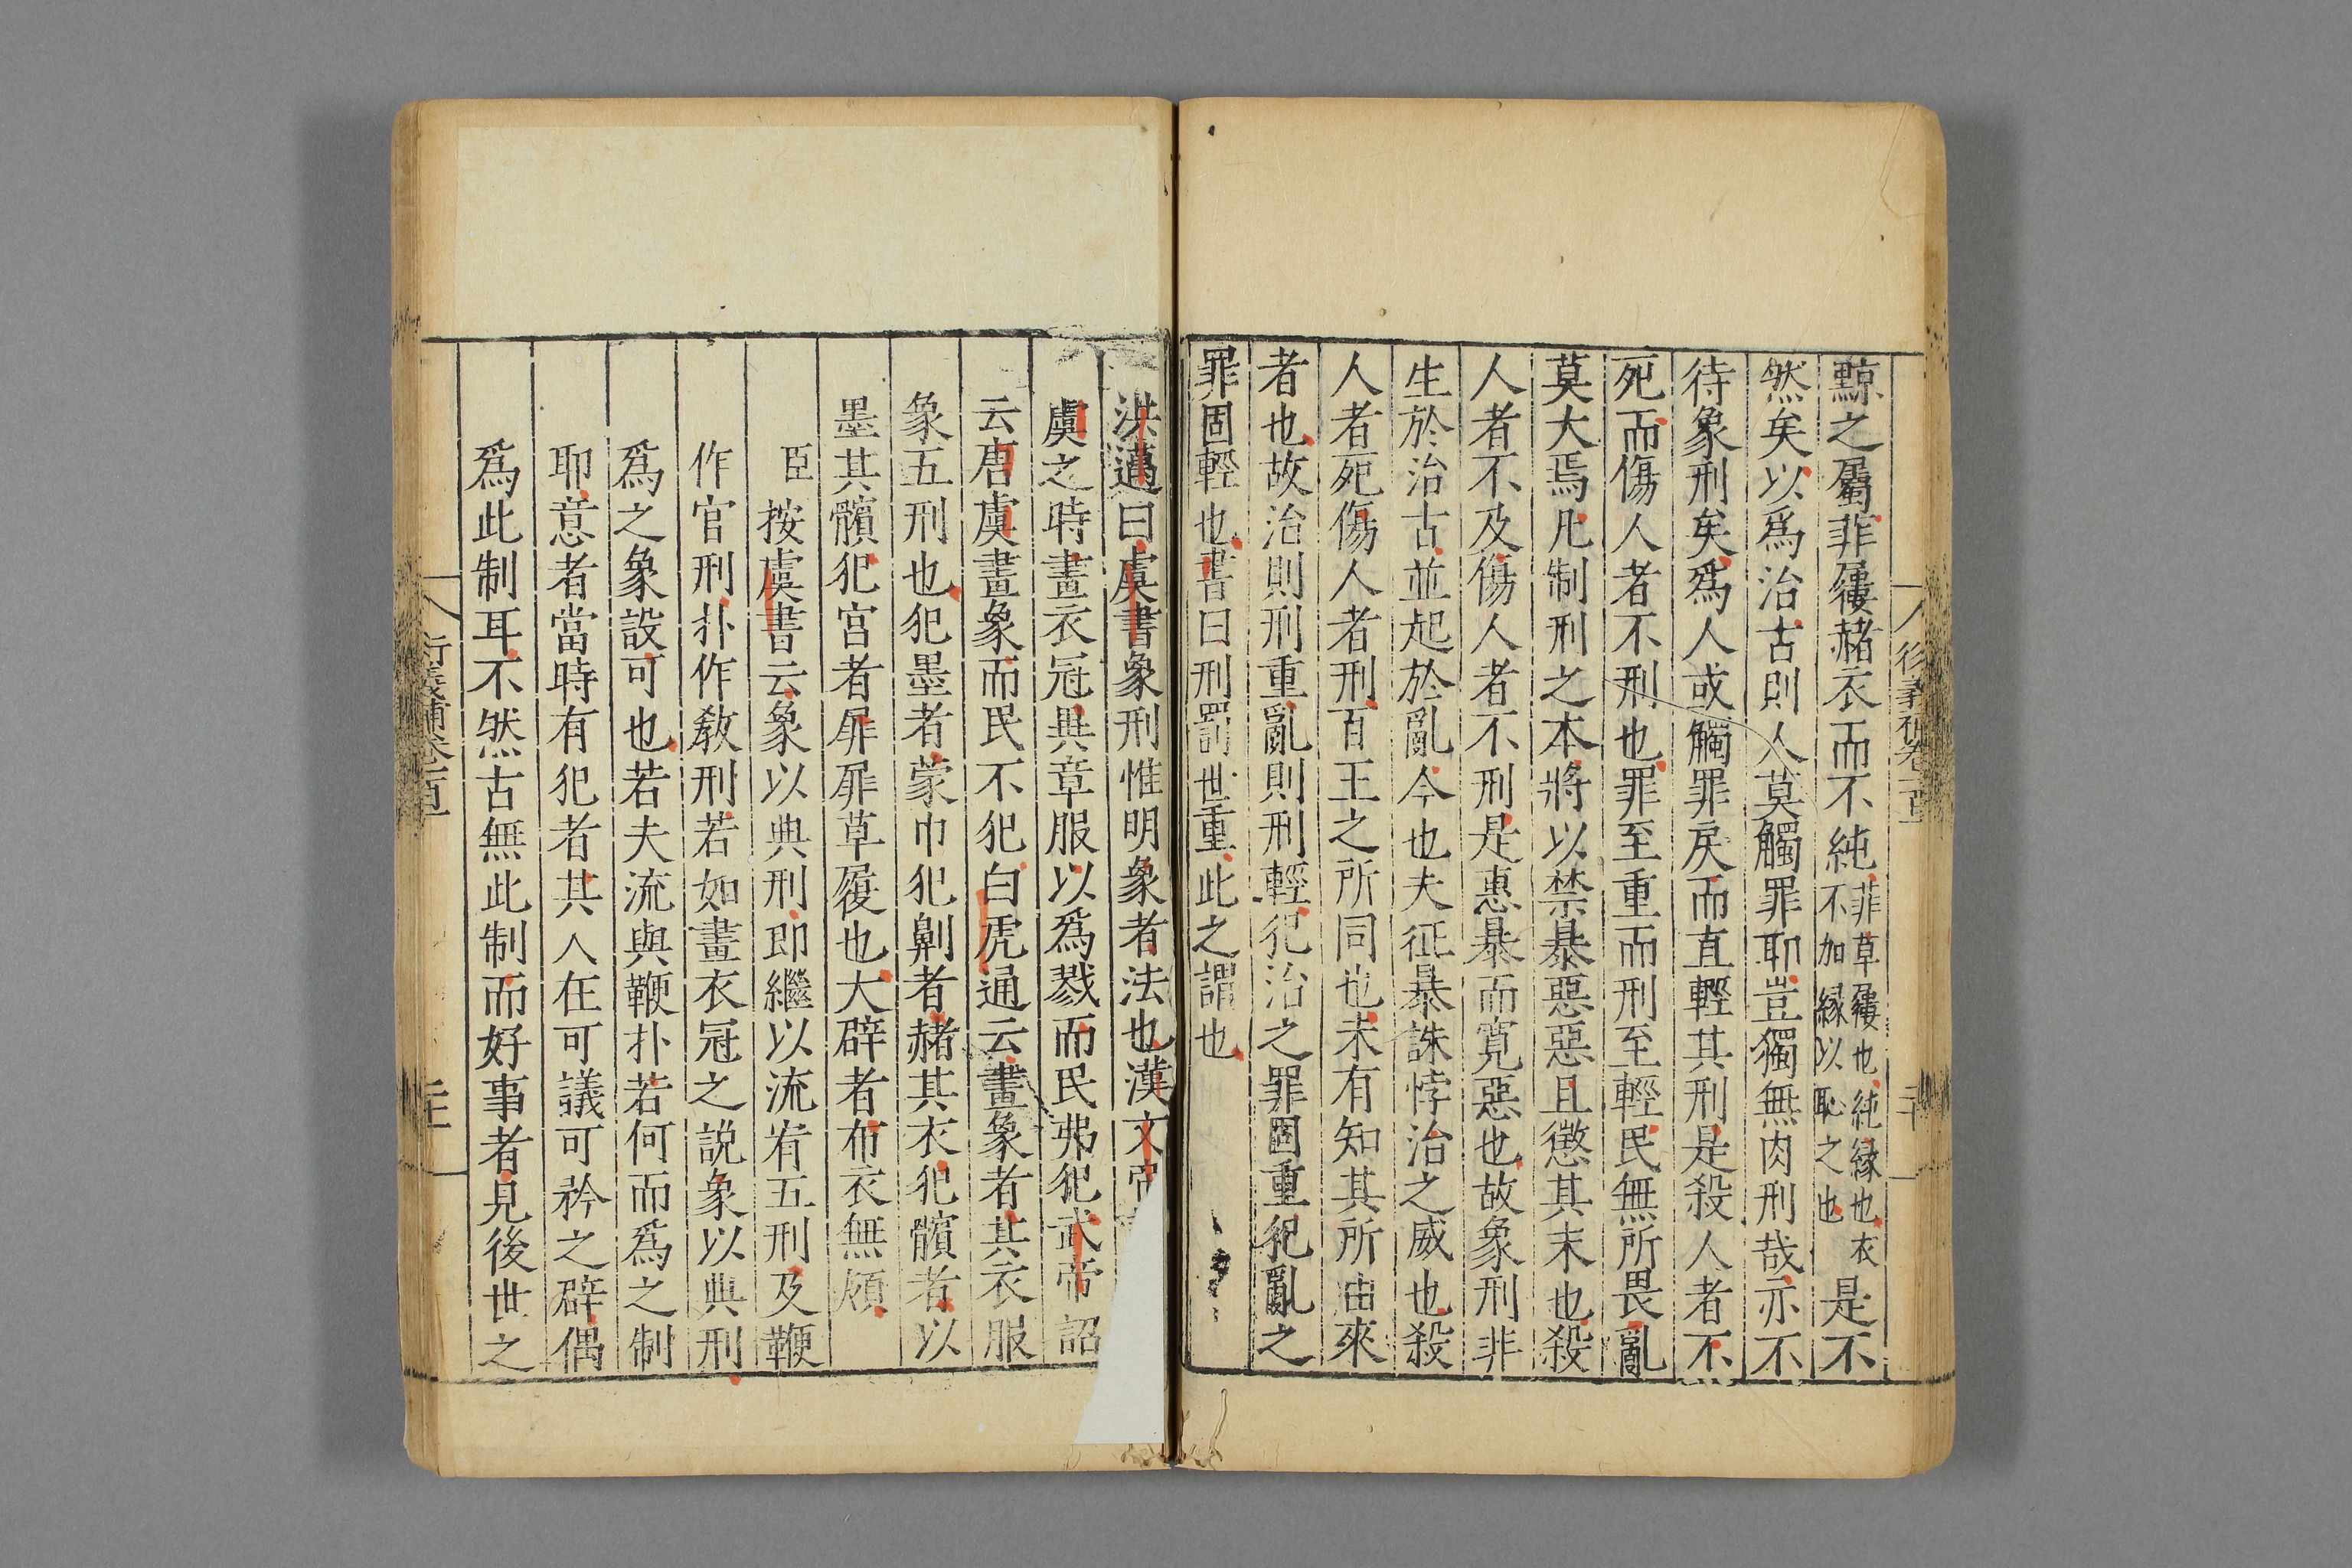 黥之屬菲屨赭衣而不純菲草屨也純縁也衣不加縁以恥之也是不
然矣以爲治古則人莫觸罪耶豈獨無肉刑哉亦不
待象刑矣爲人或觸罪戾而直輕其刑是殺人者不
死而傷人者不刑也罪至重而刑至輕民無所畏亂
莫大焉凡制刑之本將以禁暴惡惡且懲其末也殺
人者不及傷人者不刑是惠暴而寛惡也故象刑非
生於治古並起於亂今也夫征暴誅悖治之威也殺
人者死傷人者刑百王之所同也未有知其所由來
者也故治則刑重亂則刑輕犯治之罪固重犯亂之
罪固輕也書曰刑罰世重此之謂也
洪邁曰虞書象刑惟明象者法也漢文帝
虞之時畫衣冠異章服以爲戮而民弗犯武帝詔
云唐虞畫象而民不犯白虎通云畫象者其衣服
象五刑也犯墨者蒙巾犯劓者赭其衣犯髕者以
墨其髕犯宮者屝屝草履也大辟者布衣無領
臣按虞書云象以典刑即繼以流宥五刑及鞭
作官刑扑作敎刑若如畫衣冠之説象以典刑
爲之象設可也若夫流與鞭扑若何而爲之制
耶意者當時有犯者其人在可議可矜之辟偶
爲此制耳不然古無此制而好事者見後世之
衍義補卷一百